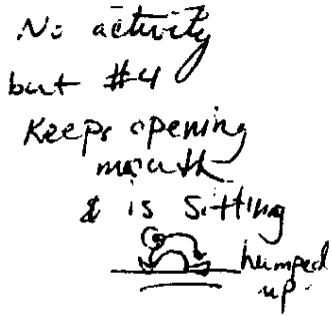 No activity
but #4
Keeps opening
mouth
& is sitting
humped
up